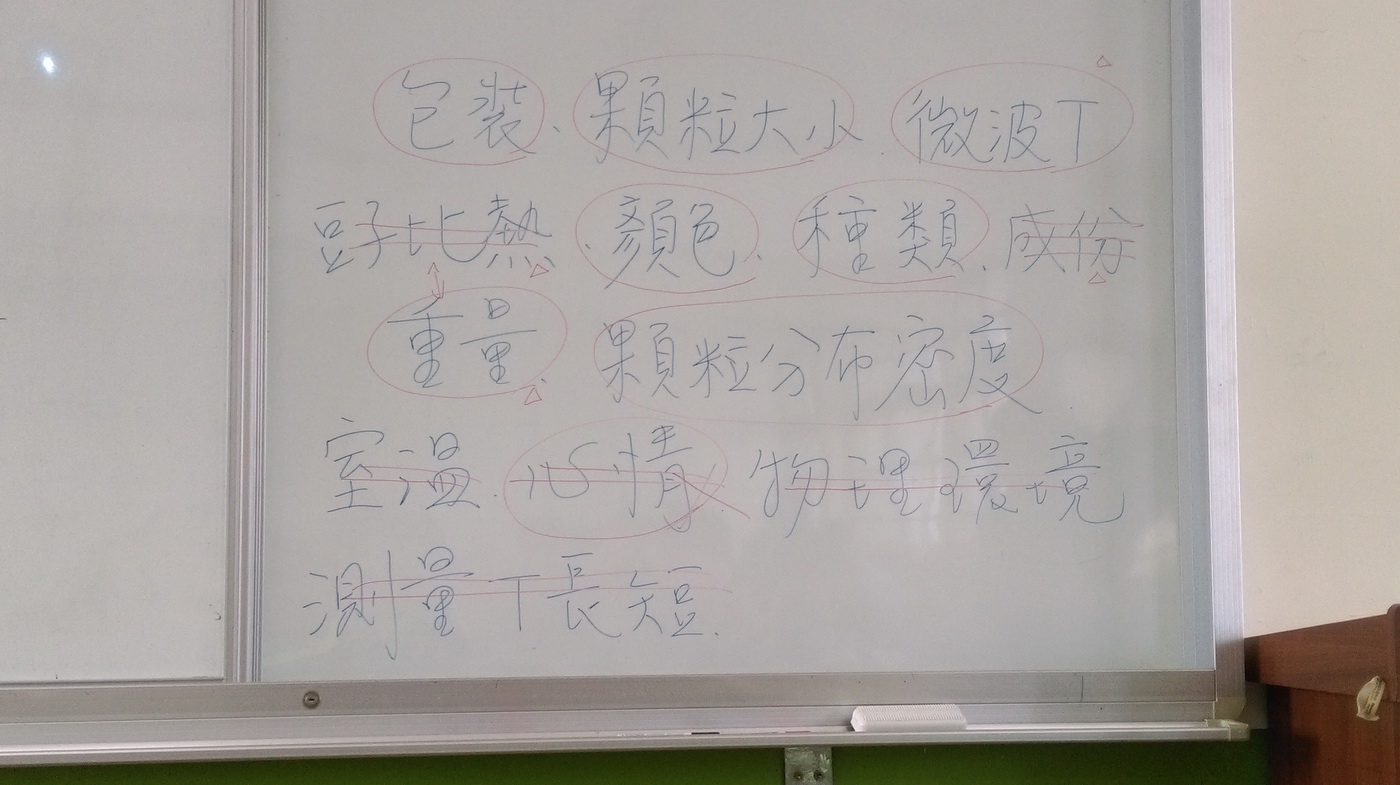 包裝、顆粒大小、微波T
豆子比熱、顏色、種類、成份
重量 顆粒分布密度
室溫、心情、物理環境
測量T長短.